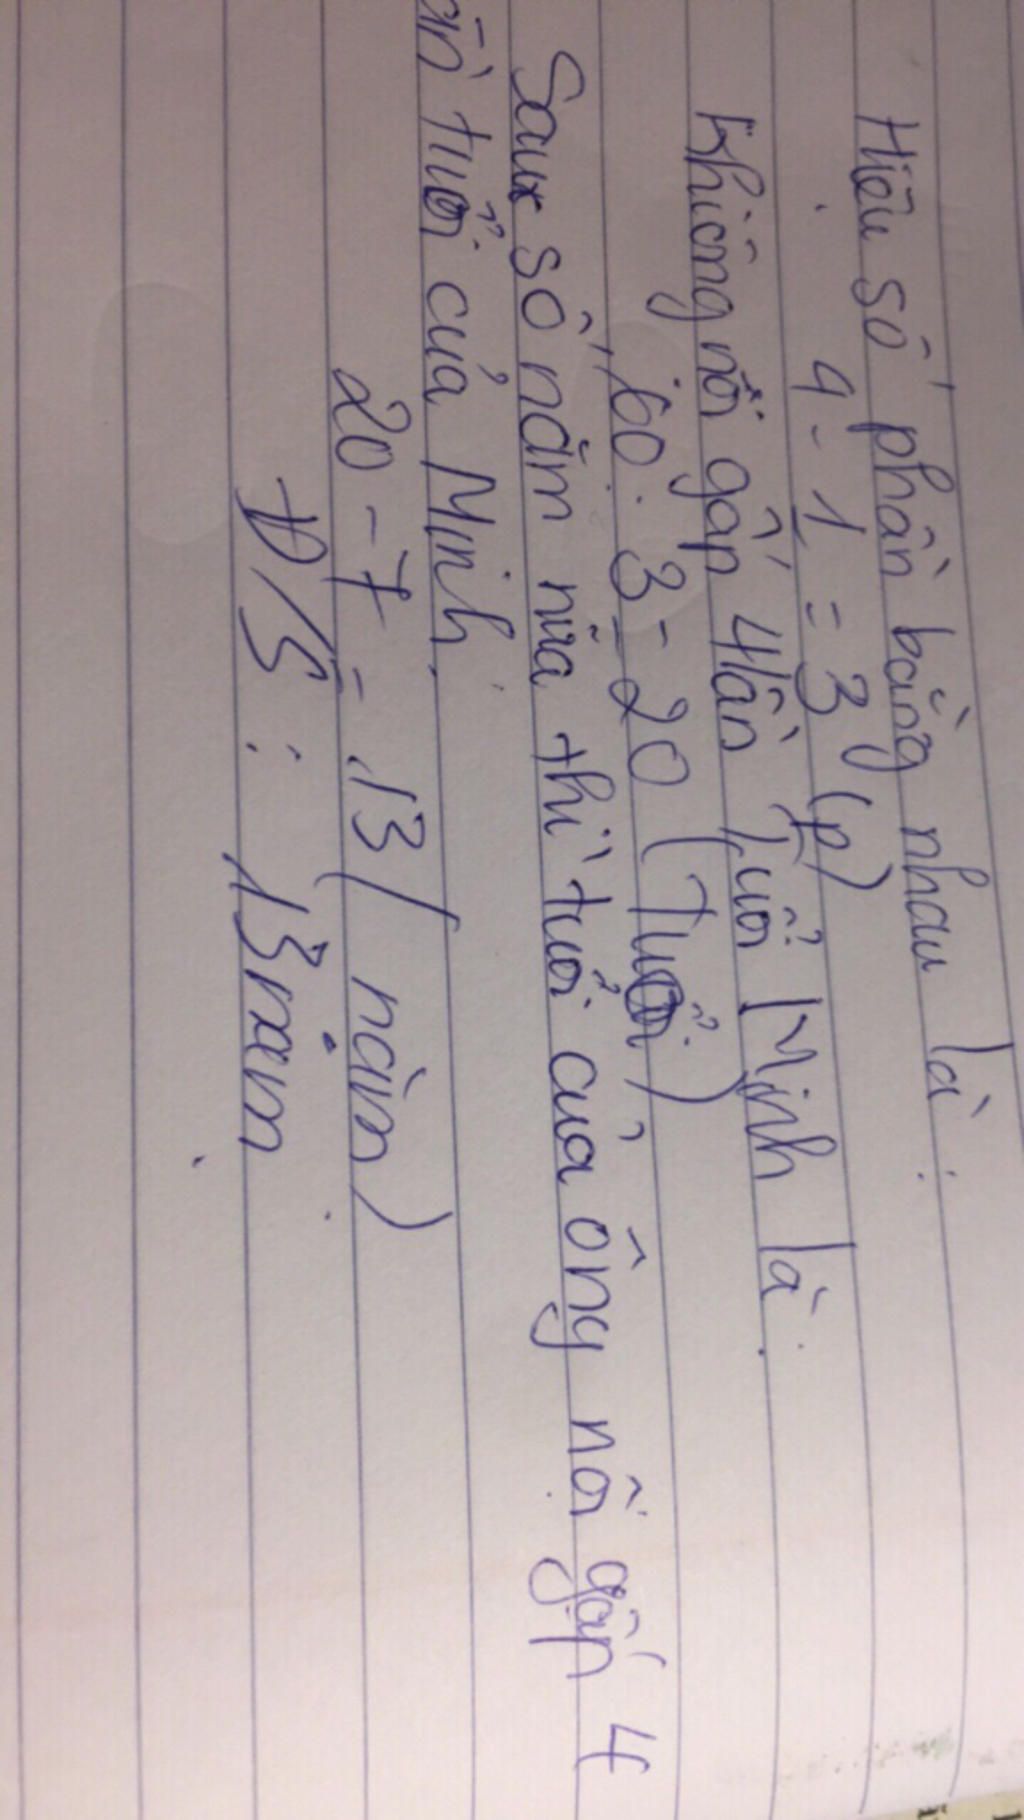 Hiệu số phần bằng nhau là:
4 - 1 = 3 (p)
Khi ông nội gấp 4 lần tuổi Minh là:
60 : 3 = 20 (Tuổi)
Sau số năm nữa thì tuổi của ông nội gấp 4
lần tuổi của Minh.
20 - 7 = 13 (năm)
Đ/S : 13 năm